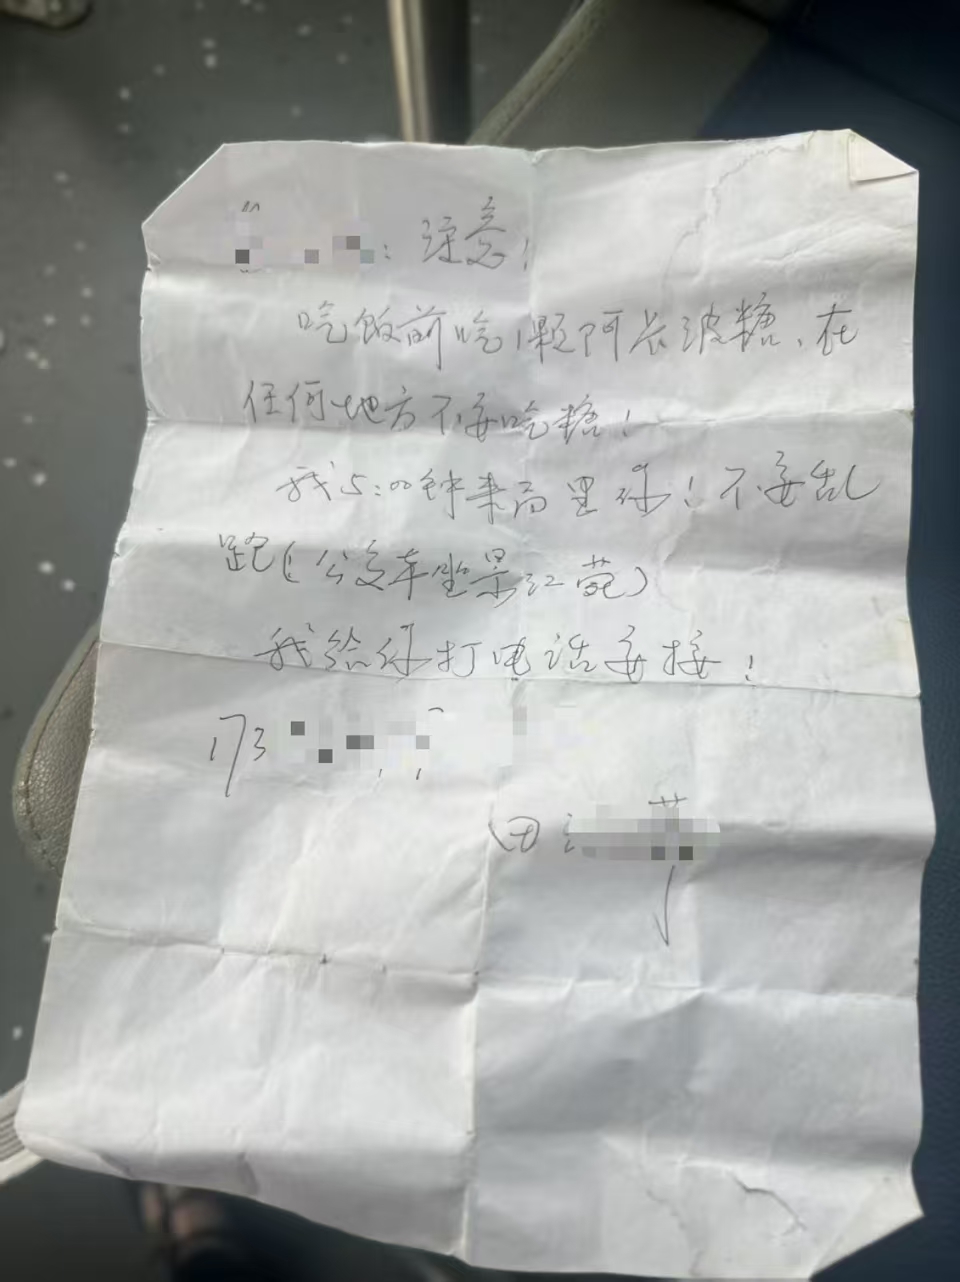 ：注意！
吃饭前吃1颗阿卡波糖、在
任何地方不要吃糖！
我5:00钟来这里你！不要乱
跑！（公交车坐景江苑）
我给你打电话要接！
173
田